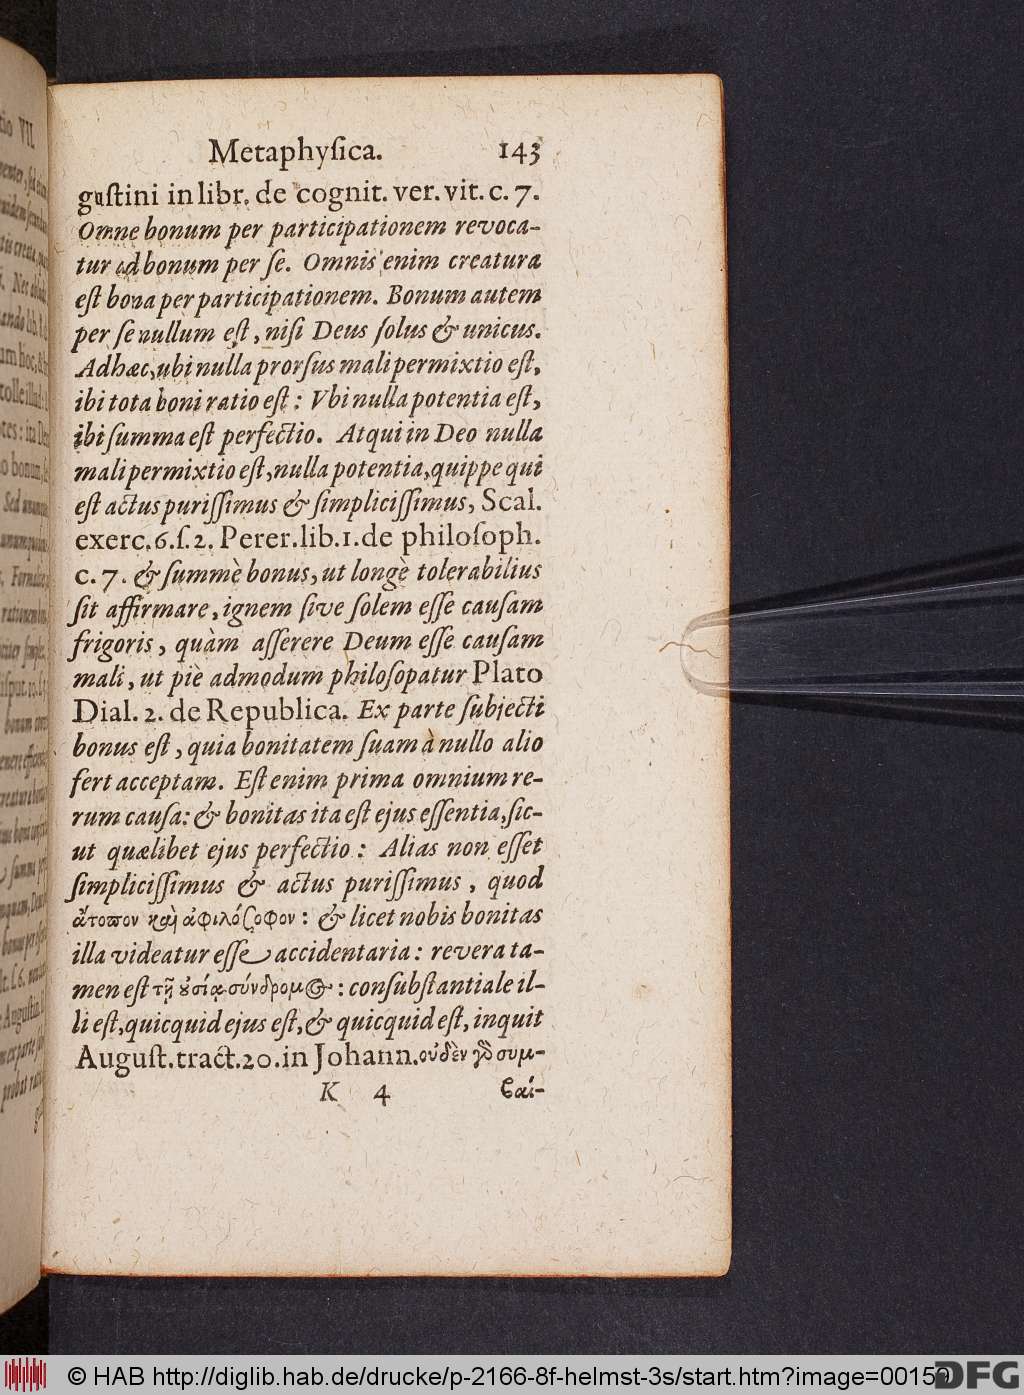 Metaphyſica. 143
guſtini in libr. de cognit. ver. vit. c. 7.
Omne bonum per participationem revoca-
tur ad bonum per ſe. Omnis enim creatura
eſt bona per participationem. Bonum autem
per ſe nullum eſt, niſi Deus ſolus & unicus.
Adhæc, ubi nulla prorſus mali permixtio eſt,
ibi tota boni ratio eſt: Vbi nulla potentia eſt,
ibi ſumma eſt perfectio. Atqui in Deo nulla
mali permixtio eſt, nulla potentia, quippe qui
eſt actus puriſſimus & ſimpliciſſimus, Scal.
exerc. 6. ſ. 2. Perer. lib. 1. de philoſoph.
c. 7. & ſummè bonus, ut longè tolerabilius
ſit affirmare, ignem ſive ſolem eſſe cauſam
frigoris, quàm aſſerere Deum eſſe cauſam
mali, ut piè admodum philoſopatur Plato
Dial. 2. de Republica. Ex parte ſubjecti
bonus eſt, quia bonitatem ſuam à nullo alio
fert acceptam. Eſt enim prima omnium re-
rum cauſa: & bonitas ita eſt ejus eſſentia, ſic-
ut quælibet ejus perfectio: Alias non eſſet
ſimpliciſſimus & actus puriſſimus, quod
ἄτοπον καὶ ἀφιλόσοφον: & licet nobis bonitas
illa videatur eſſe accidentaria: revera ta-
men eſt τῇ οὐσίᾳ σύνδρομος: conſubſtantiale il-
li eſt, quicquid ejus eſt, & quicquid eſt, inquit
Auguſt. tract. 20. in Johann. οὐδὲν γὸ συμ-
K 4 βαί-
© HAB http://diglib.hab.de/drucke/p-2166-8f-helmst-3s/start.htm?image=00159
DFG